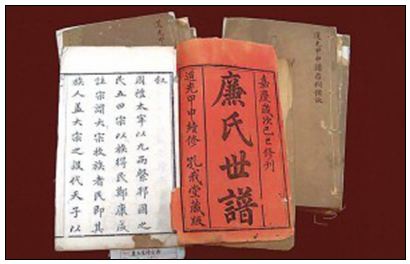 嘉慶歲次己巳修刊
廉氏世譜
道光甲申續修 孔戒堂藏版
叙
周禮太宰以九兩繫邦國之
民五曰宗以族得民鄭康成
註宗謂大宗收族者民即其
族人蓋大宗之設代天子以
道光甲申譜存祠